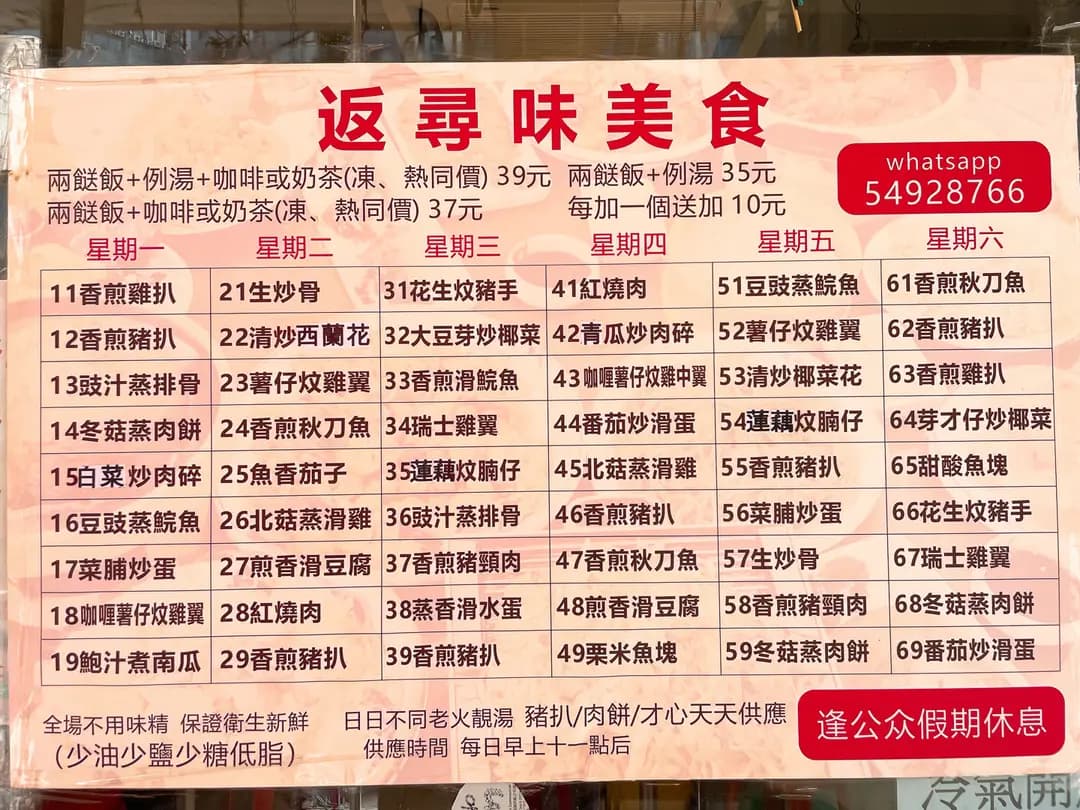 返尋味美食
兩餸飯+例湯+咖啡或奶茶(凍、熱同價) 39元 兩餸飯+例湯 35元
兩餸飯+咖啡或奶茶(凍、熱同價) 37元 每加一個送加 10元
whatsapp
54928766
星期一 星期二 星期三 星期四 星期五 星期六
11香煎雞扒 21生炒骨 31花生炆豬手 41紅燒肉 51豆豉蒸鯇魚 61香煎秋刀魚
12香煎豬扒 22清炒西蘭花 32大豆芽炒椰菜 42青瓜炒肉碎 52薯仔炆雞翼 62香煎豬扒
13豉汁蒸排骨 23薯仔炆雞翼 33香煎滑鯇魚 43咖喱薯仔炆雞中翼 53清炒椰菜花 63香煎雞扒
14冬菇蒸肉餅 24香煎秋刀魚 34瑞士雞翼 44番茄炒滑蛋 54蓮藕炆腩仔 64芽才仔炒椰菜
15白菜炒肉碎 25魚香茄子 35蓮藕炆腩仔 45北菇蒸滑雞 55香煎豬扒 65甜酸魚塊
16豆豉蒸鯇魚 26北菇蒸滑雞 36豉汁蒸排骨 46香煎豬扒 56菜脯炒蛋 66花生炆豬手
17菜脯炒蛋 27煎香滑豆腐 37香煎豬頸肉 47香煎秋刀魚 57生炒骨 67瑞士雞翼
18咖喱薯仔炆雞翼 28紅燒肉 38蒸香滑水蛋 48煎香滑豆腐 58香煎豬頸肉 68冬菇蒸肉餅
19鮑汁煮南瓜 29香煎豬扒 39香煎豬扒 49栗米魚塊 59冬菇蒸肉餅 69番茄炒滑蛋
全場不用味精 保證衛生新鮮 日日不同老火靚湯 豬扒/肉餅/才心天天供應
(少油少鹽少糖低脂) 供應時間 每日早上十一點后
逢公众假期休息
冷氣開